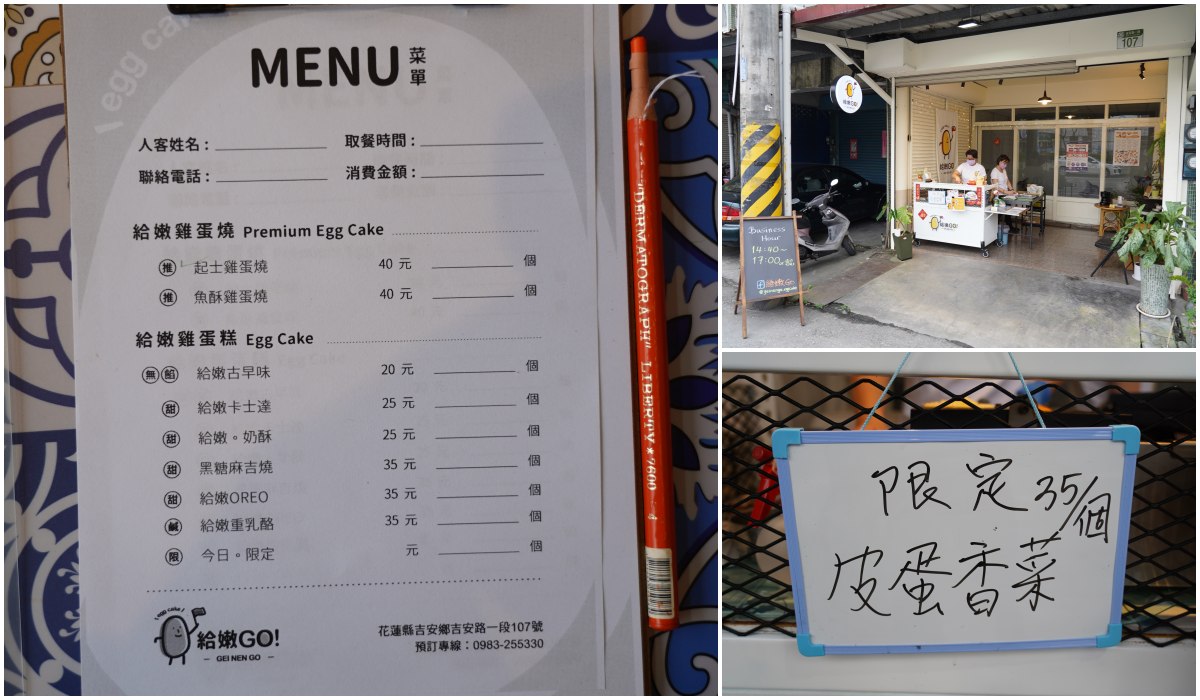 I egg cake
MENU 菜單
人客姓名： 取餐時間：
聯絡電話： 消費金額：
給嫩雞蛋燒 Premium Egg Cake
推 起士雞蛋燒 40 元 個
推 魚酥雞蛋燒 40 元 個
給嫩雞蛋糕 Egg Cake
無 餡 給嫩古早味 20 元 個
甜 給嫩卡士達 25 元 個
甜 給嫩。奶酥 25 元 個
甜 黑糖麻吉燒 35 元 個
甜 給嫩OREO 35 元 個
鹹 給嫩重乳酪 35 元 個
限 今日。限定 元 個
I egg cake!
給嫩GO!
GEI NEN GO
花蓮縣吉安鄉吉安路一段107號
預訂專線：0983-255330
"DERMATOGRAPH" LIBERTY * 7600
107
給嫩GO!
給嫩GO!
給嫩GO!
Business
Hour
14:40~
17:00
給嫩GO
限定 35/個
皮蛋香菜